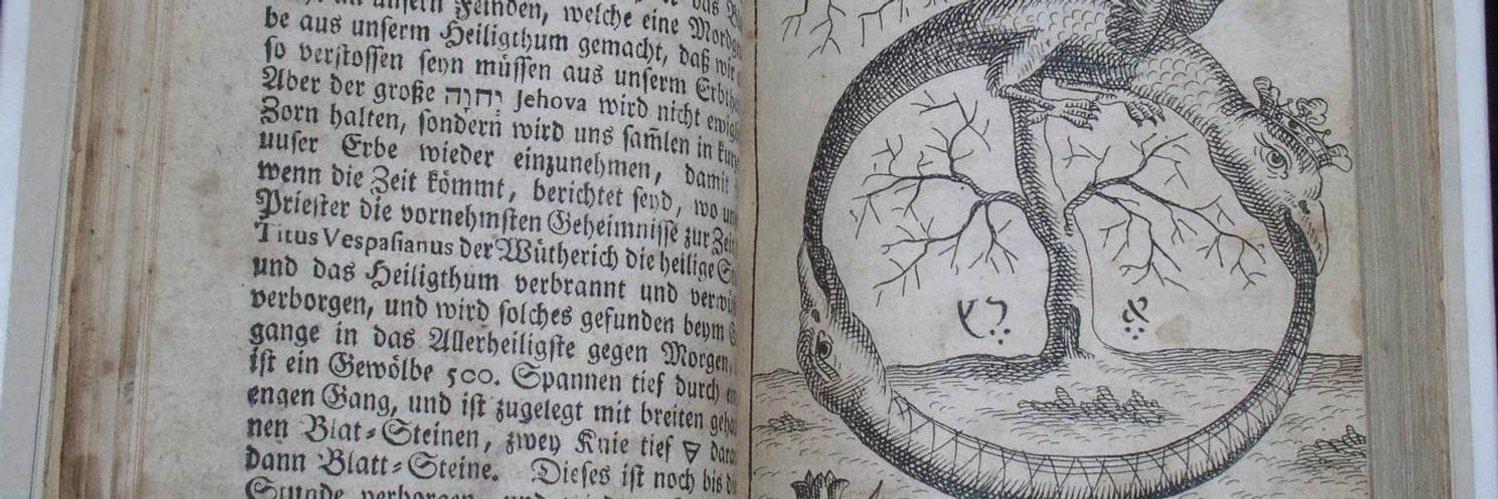 unsern Feinden, welche eine Mord
be aus unserm Heiligthum gemacht, daß wir
so verstossen seyn müssen aus unserm Erbth
Aber der große יהוה Jehova wird nicht ewig
Zorn halten, sondern wird uns sam̃len in kur
unser Erbe wieder einzunehmen, damit
wenn die Zeit kömmt, berichtet seyd, wo un
Priester die vornehmsten Geheimnisse zur Zei
Titus Vespasianus der Wütherich die heilige
und das Heiligthum verbrannt und verwü
verborgen, und wird solches gefunden beym
gange in das Allerheiligste gegen Morgen,
ist ein Gewölbe 500. Spannen tief durch
engen Gang, und ist zugelegt mit breiten geha
nen Blat-Steinen, zwey Knie tief 🜃 dara
dann Blatt-Steine. Dieses ist noch bis
Stunde verborgen, und